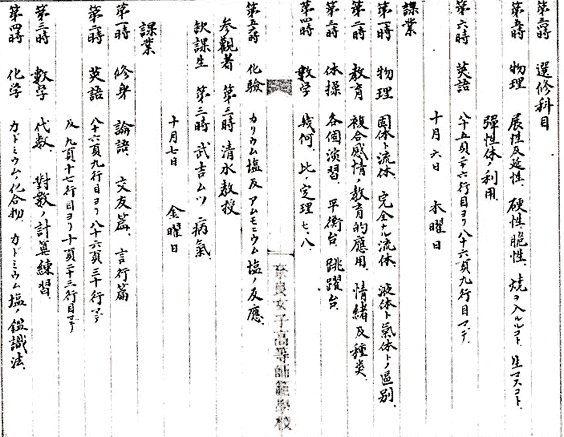 第六時 選修科目、
第五時 物理 展性及延性、硬性、脆性、焼ヲ入ルルコト、生マスコト、
弾性体ノ利用、
第六時 英語 八十五頁二十六行目ヨリ八十六頁九行目マデ、
十月六日 木曜日
課業
第一時 物理 固体ト流体、完全ナル流体、液体ト氣体トノ區別、
第二時 教育 複合感情ノ教育的應用、情緒及種類、
第三時 体操 各個演習、平衡台、跳躍台、
第四時 數学 幾何、比ノ定理七、八、
奈良女子高等師範學校
第五時 化驗 カリウム塩及アムモニウム塩ノ反應、
参觀者 第三時 清水教授
欠課生 第三時 武吉ムツ 病氣
十月七日 金曜日
課業
第一時 修身 論語、交友篇、言行篇
第二時 英語 八十六頁九行目ヨリ八十六頁三十行マデ
及九頁十七行目ヨリ十頁二十三行目マデ
第三時 數学 代数、對数ノ計算練習、
第四時 化学 カドミウム化合物、カドミウム塩ノ鑑識法、